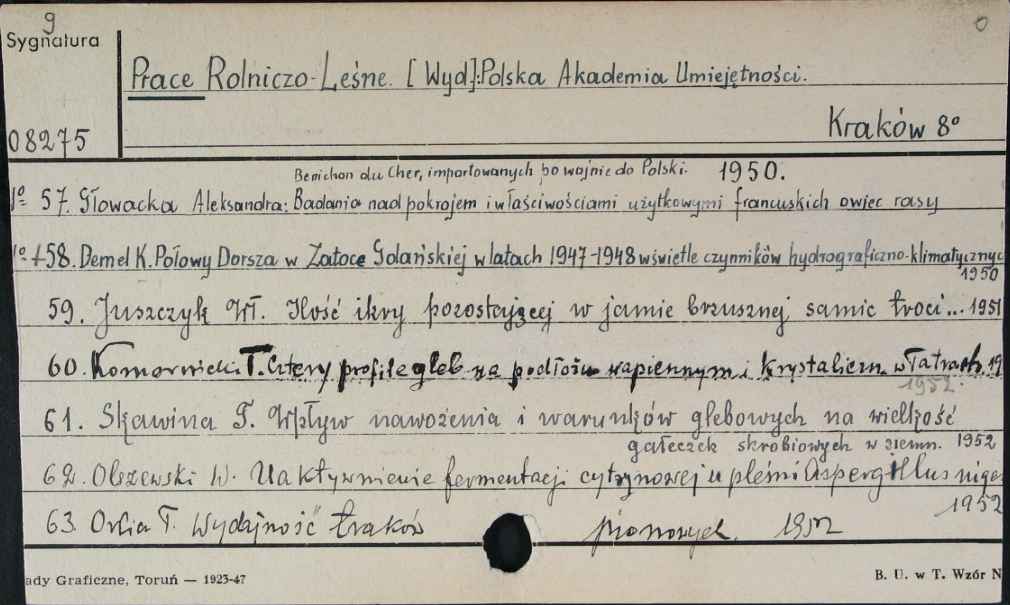 g
0
Sygnatura
Prace Rolniczo-Leśne. [Wyd]: Polska Akademia Umiejętności.
08275
Kraków 8°
Berichon du Cher, importowanych po wojnie do Polski. 1950.
№ 57. Głowacka Aleksandra: Badania nad pokrojem i właściwościami użytkowymi francuskich owiec rasy
№ 58. Demel K. Połowy Dorsza w Zatoce Gdańskiej w latach 1947-1948 w świetle czynników hydrograficzno-klimatycznyc
1950
59. Juszczyk Wł. Ilość ikry pozostającej w jamie brzusznej samic troci... 1951
60. Komornicki T. Cztery profile gleb na podłożu wapiennym i krystaliczn. w Tatrach. 19
1952.
61. Skawina T. Wpływ nawożenia i warunków glebowych na wielkość
gałeczek skrobiowych w ziemn. 1952
62. Olszewski W. Uaktywnienie fermentacji cytrynowej u pleśni Aspergillus niger
1952
63. T. Wydajność traków pionowych. 1952
ady Graficzne, Toruń — 1923-47
B. U. w T. Wzór N